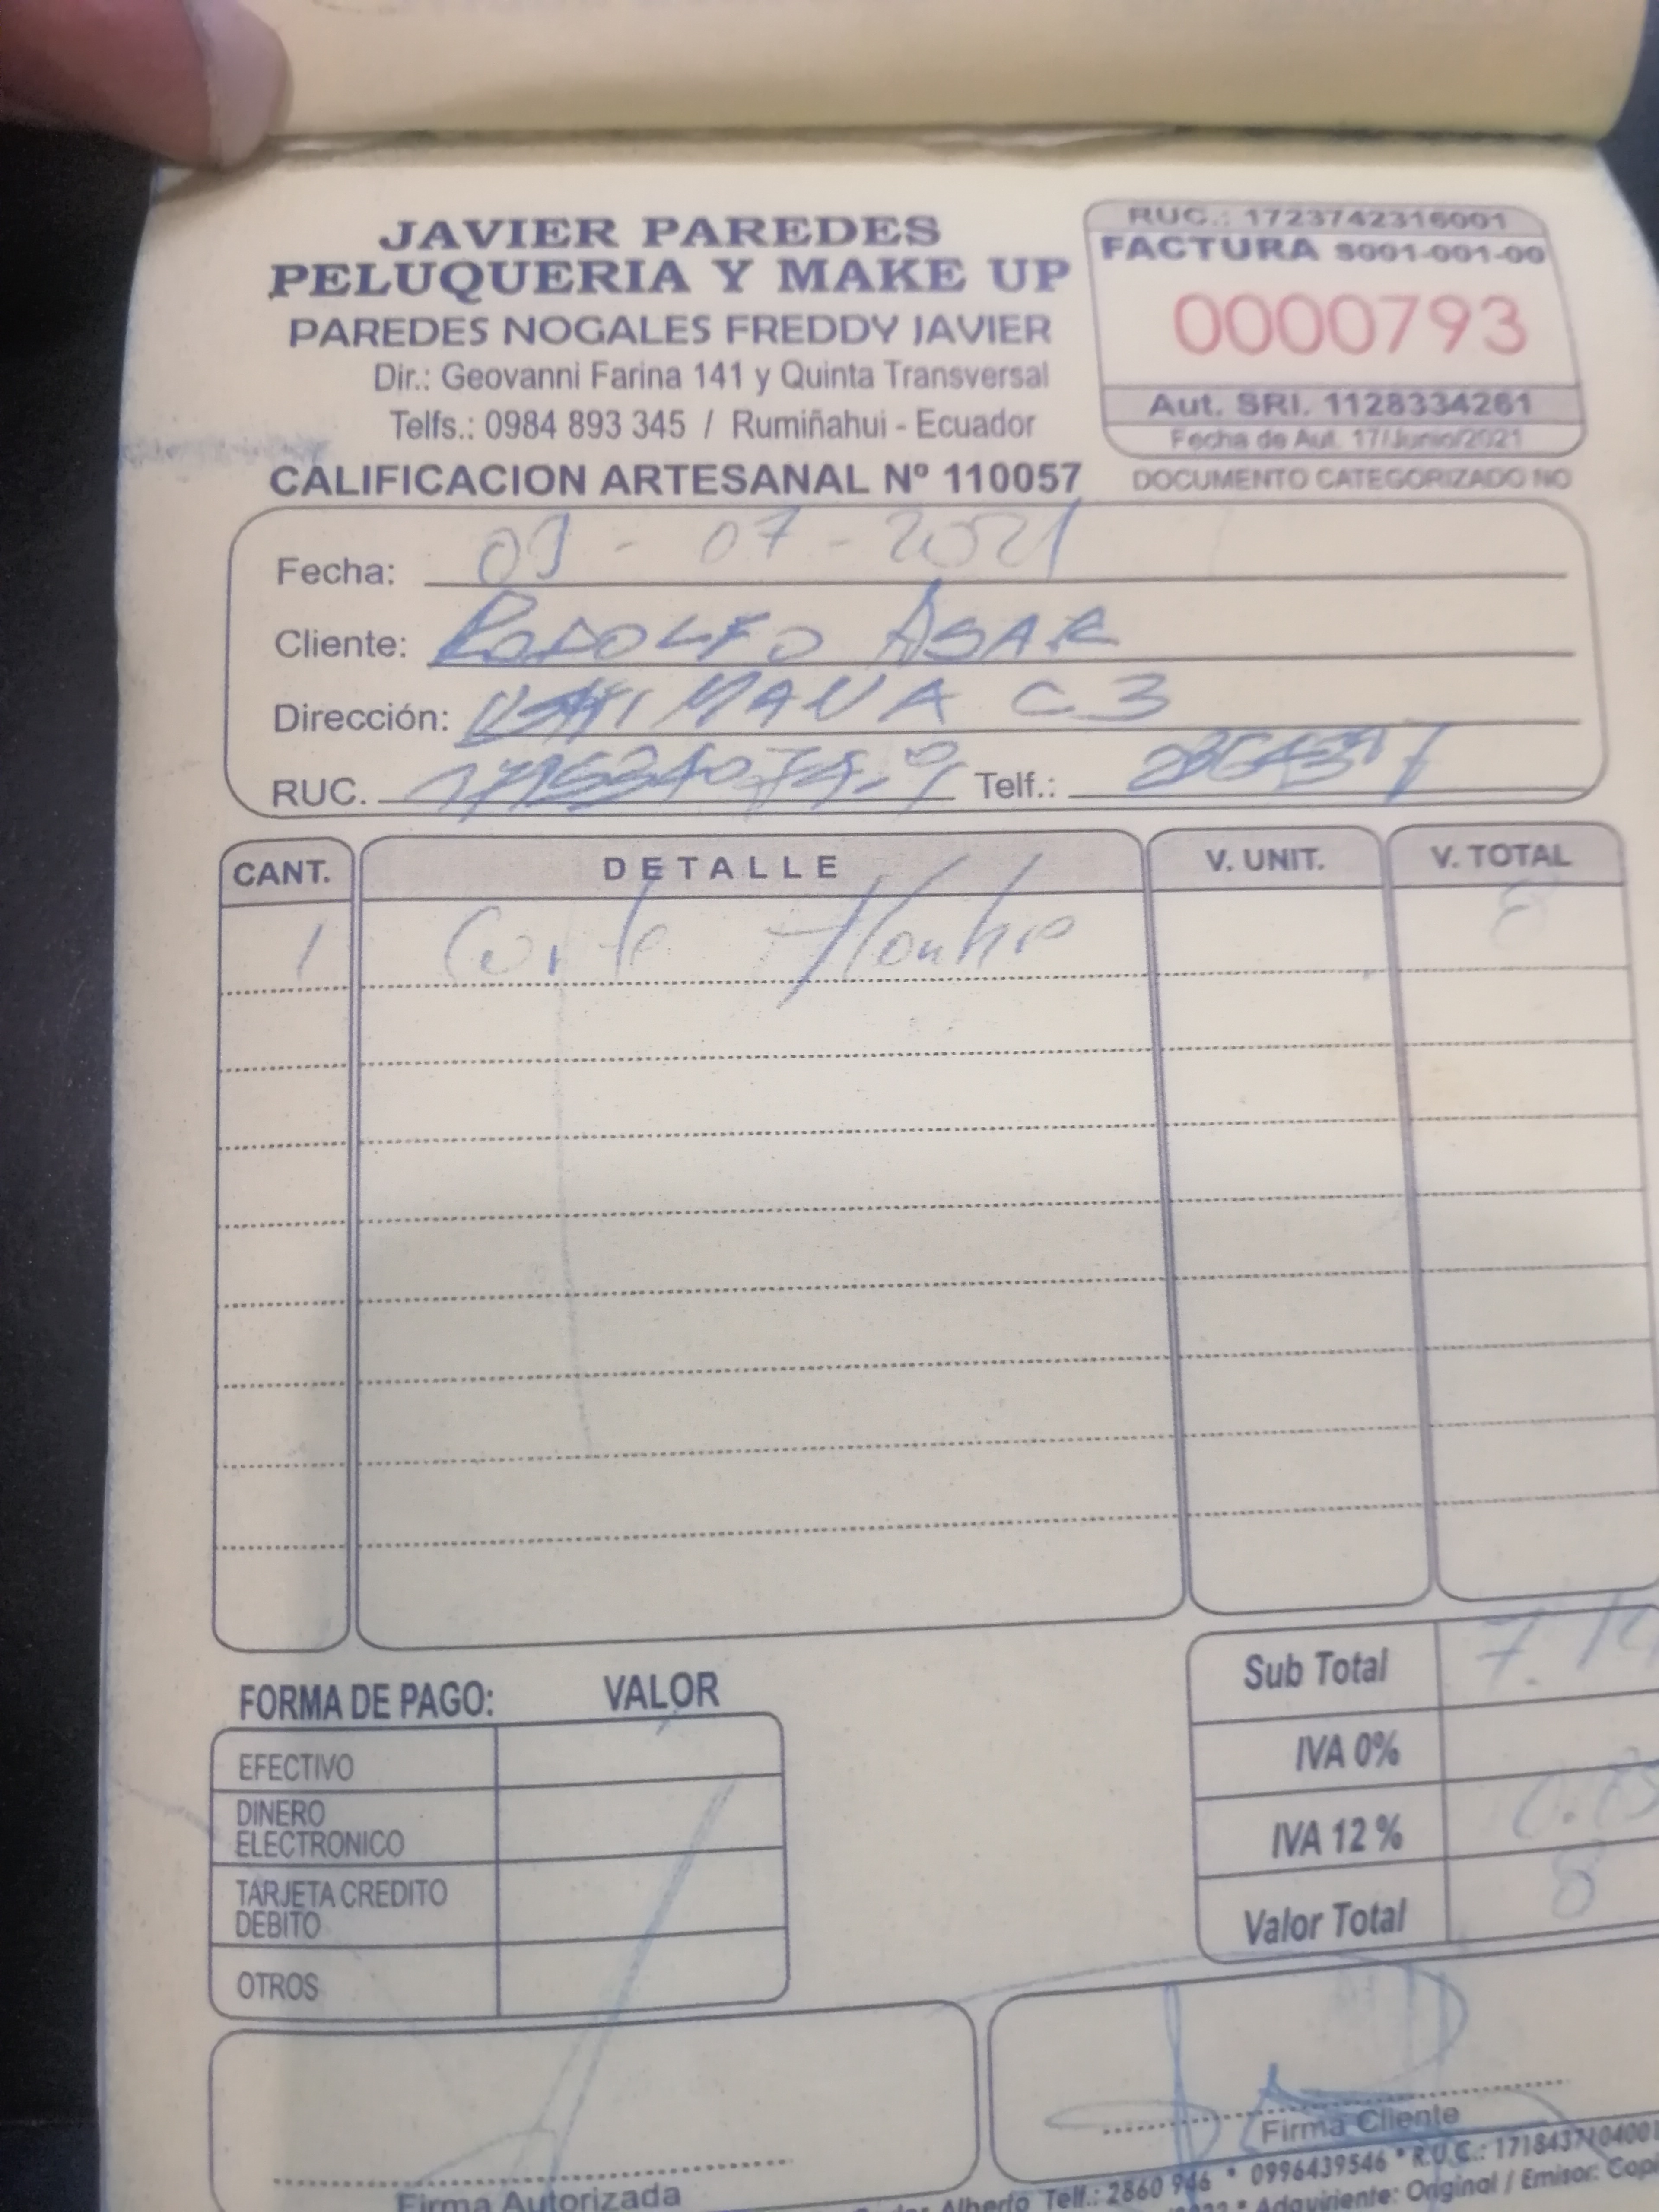 JAVIER PAREDES
PELUQUERIA Y MAKE UP
PAREDES NOGALES FREDDY JAVIER
Dir.: Geovanni Farina 141 y Quinta Transversal
Telfs.: 0984 893 345 / Rumiñahui - Ecuador
CALIFICACION ARTESANAL Nº 110057
RUC.: 1723742316001
FACTURA S001-001-00
0000793
Aut. SRI. 1128334261
Fecha de Aut. 17/Junio/2021
DOCUMENTO CATEGORIZADO NO
Fecha: 09 - 07 - 2021
Cliente: RODOLFO ASAR
Dirección: C 3
RUC.
Telf.:
CANT. DETALLE V. UNIT. V. TOTAL
1 Corte Hombre 8
FORMA DE PAGO: VALOR
EFECTIVO
DINERO ELECTRONICO
TARJETA CREDITO DEBITO
OTROS
Sub Total 7.14
IVA 0%
IVA 12 % 0.85
Valor Total 8
Firma Autorizada
Firma Cliente
Alberto Telf.: 2860 946 * 0996439546 * R.U.C.: 1718437104001
* Adquiriente: Original / Emisor: Copi